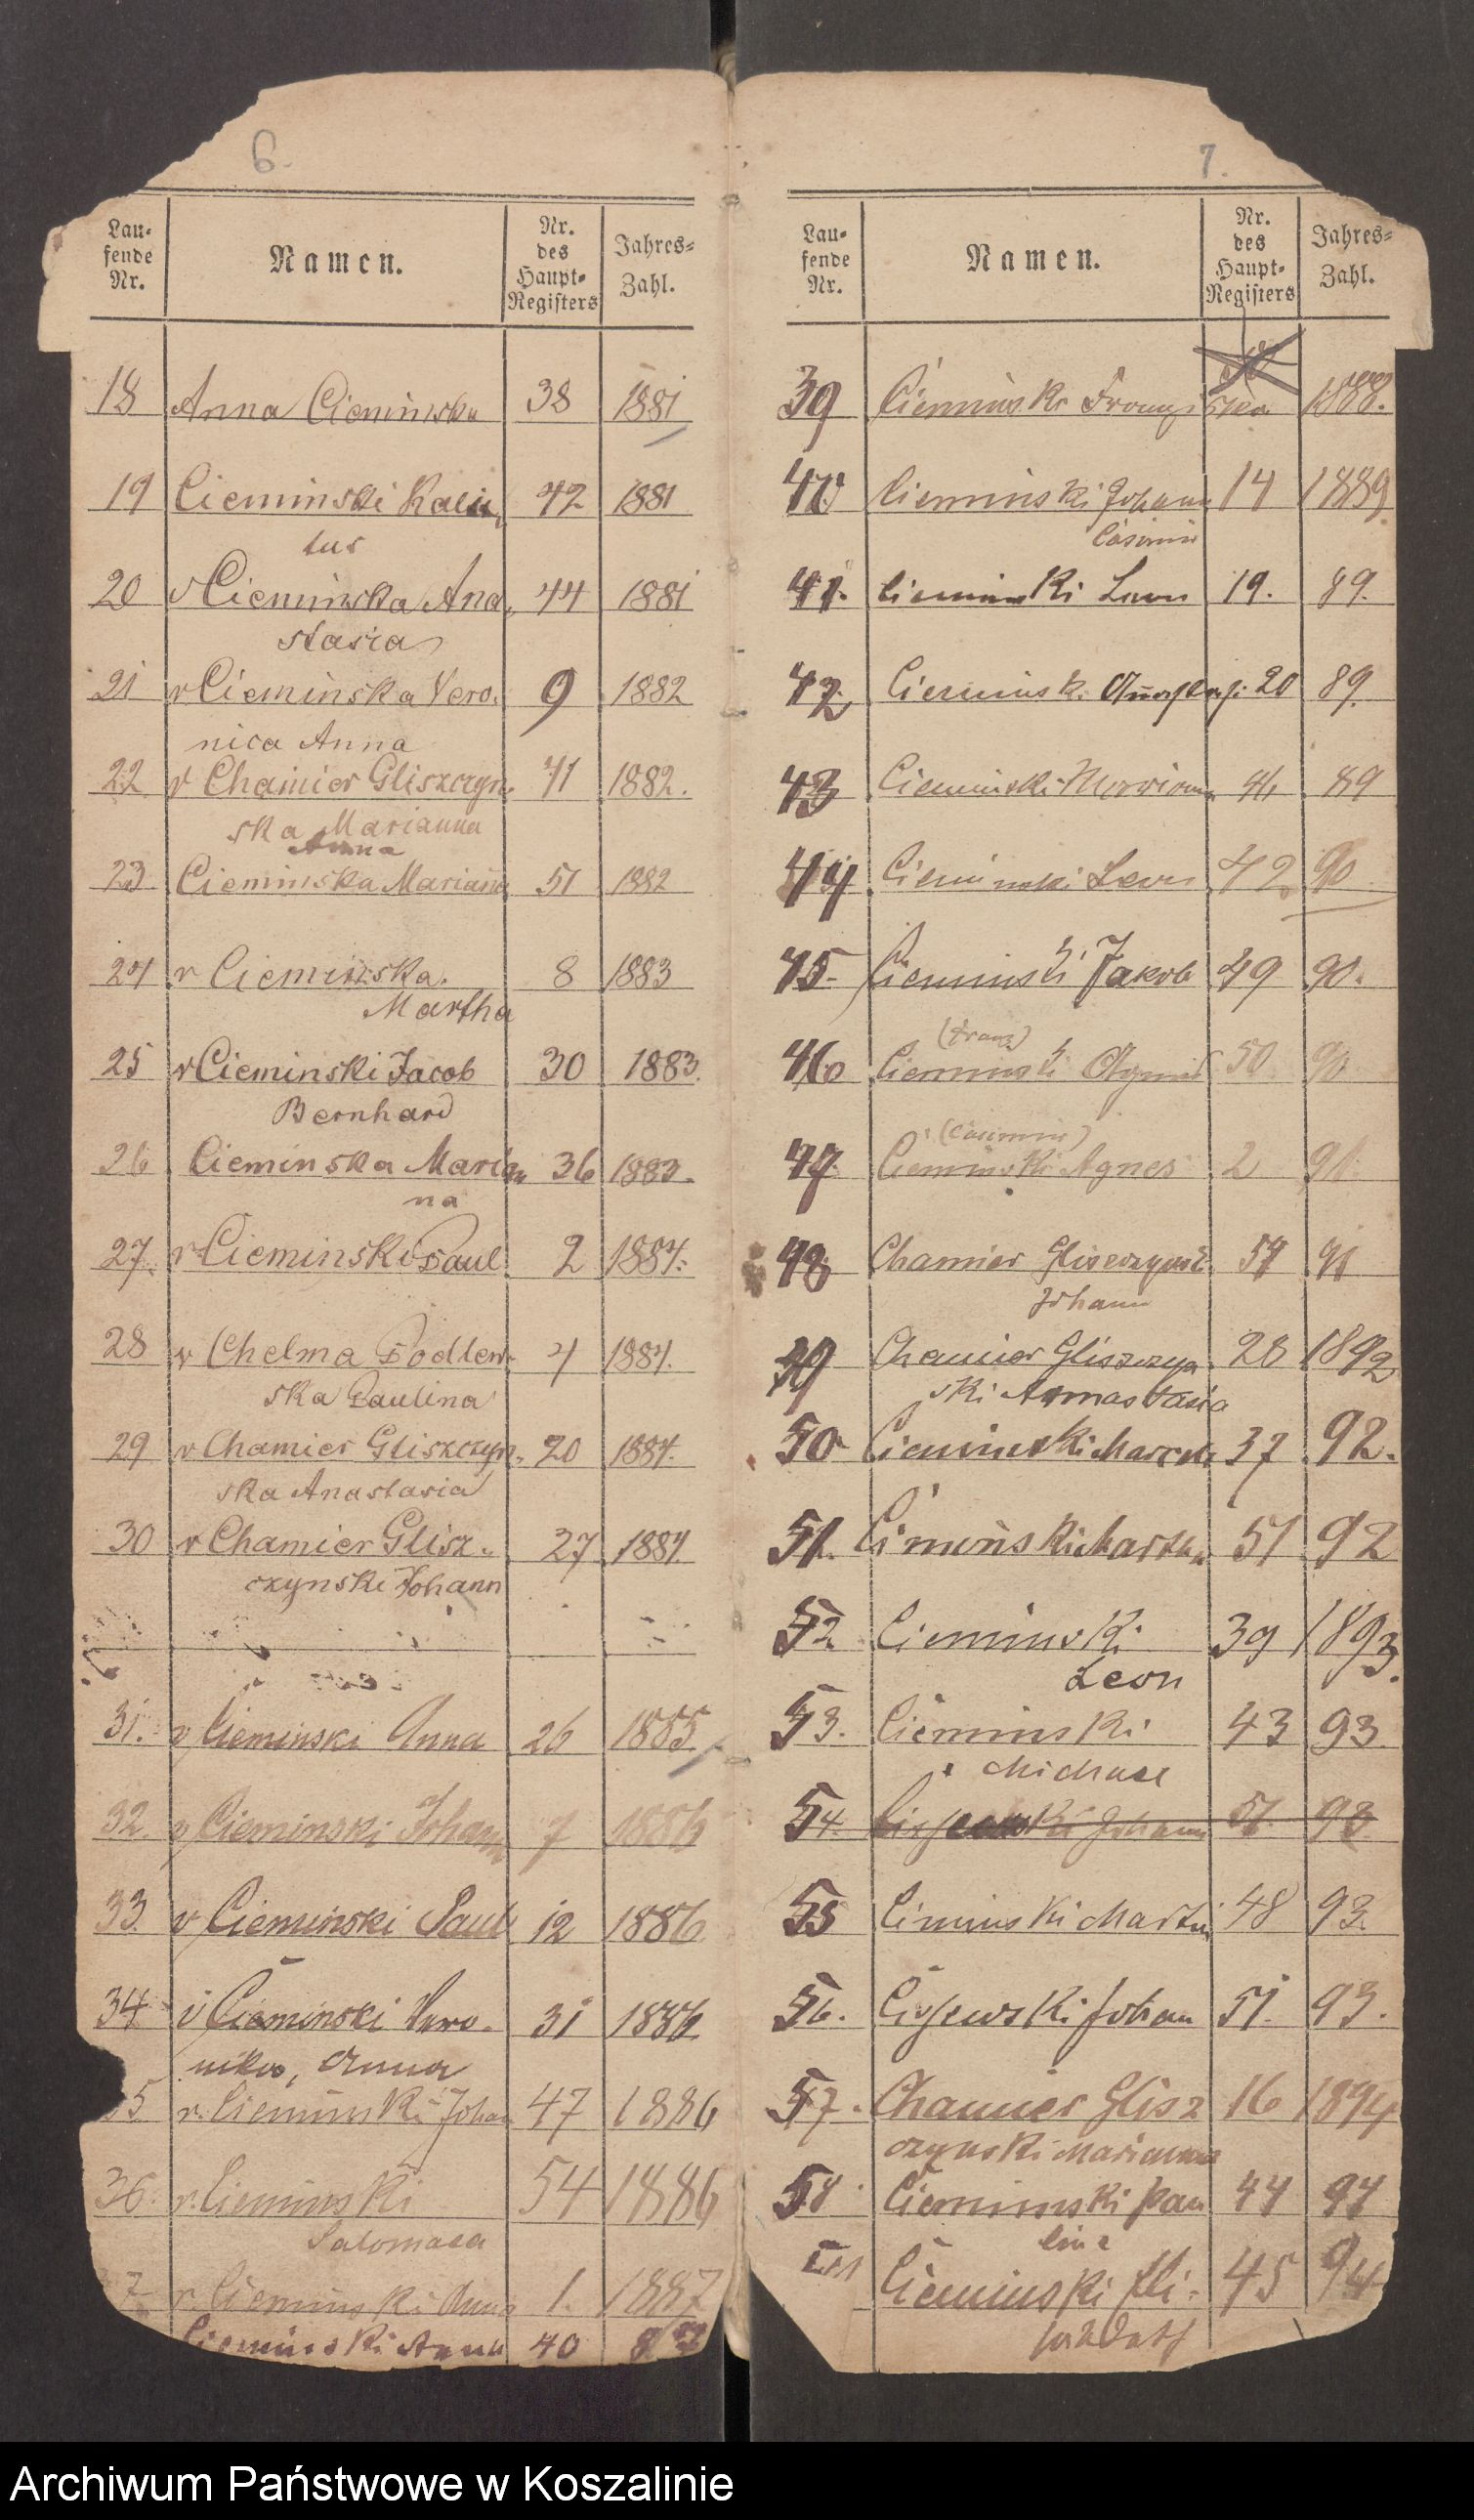 6.
Lau-
fende
Nr.
Namen.
Nr.
des
Haupt-
Registers
Jahres-
Zahl.
18 Anna Cieminska 38 1881
19 Cieminski Kalix 42 1881
tus
20 v Cieminska Ana 44 1881
stasia
21 v Cieminska Vero. 9 1882
nica Anna
22 v Chamier Gliszczyn. 41 1882.
ska Marianna
Anna
23. Cieminska Mariana 51 1882
24 v Cieminska. 8 1883
Martha
25 v Cieminski Jacob 30 1883.
Bernhard
26 Cieminska Marian 36 1883.
na
27. v Cieminski Paul 2 1884.
28 v Chelma Podlew. 4 1884.
ska Paulina
29 v Chamier Gliszczyn. 20 1884.
ska Anastasia
30 v Chamier Glisz. 27 1884
czynski Johann
31. v Cieminski Anna 26 1885.
32. v Cieminski Johann 7 1886
33. v Cieminski Paul 12 1886
34 v Cieminski Vero. 31 1886.
nika, Anna
5 v. Cieminski Johan 47 1886
36. v. Cieminski 54 1886
Salomaea
7 v. Cieminski Anna 1. 1887
Cieminski 40 87
7.
Lau-
fende
Nr.
Namen.
Nr.
des
Haupt-
Registers
Jahres-
Zahl.
39 Cieminski Franziska 1888.
40 Cieminski Johann 14 1889
Casimir
41. Cieminski Leon 19. 89.
42 Cieminski 20 89.
43 Cieminski 89
44 Cieminski Leon 42 90
45. Cieminski Jakob 49 90.
(Franz)
46 Cieminski 50 90
(Casimir)
47. Cieminski Agnes 2 91.
48 Chamier Gliszczynsk. 54 91
Johann
49 Chamier Gliszczyn 28 1892
ski Annastasia
50 Cieminski 37 92.
51. Ciminski Martha 51 92
52. Cieminski 39 1893.
Leon
53. Cieminski 43 93.
Michael
54. Johann 51. 93.
55 Ciminski Martin 48 93.
56. Cissewski Johan 51. 93.
57. Chamier Glisz 16 1894
czynski Marianna
58 Cieminski Pau 44 94
line
Cieminski Eli- 45 94
sabeth
Archiwum Państwowe w Koszalinie